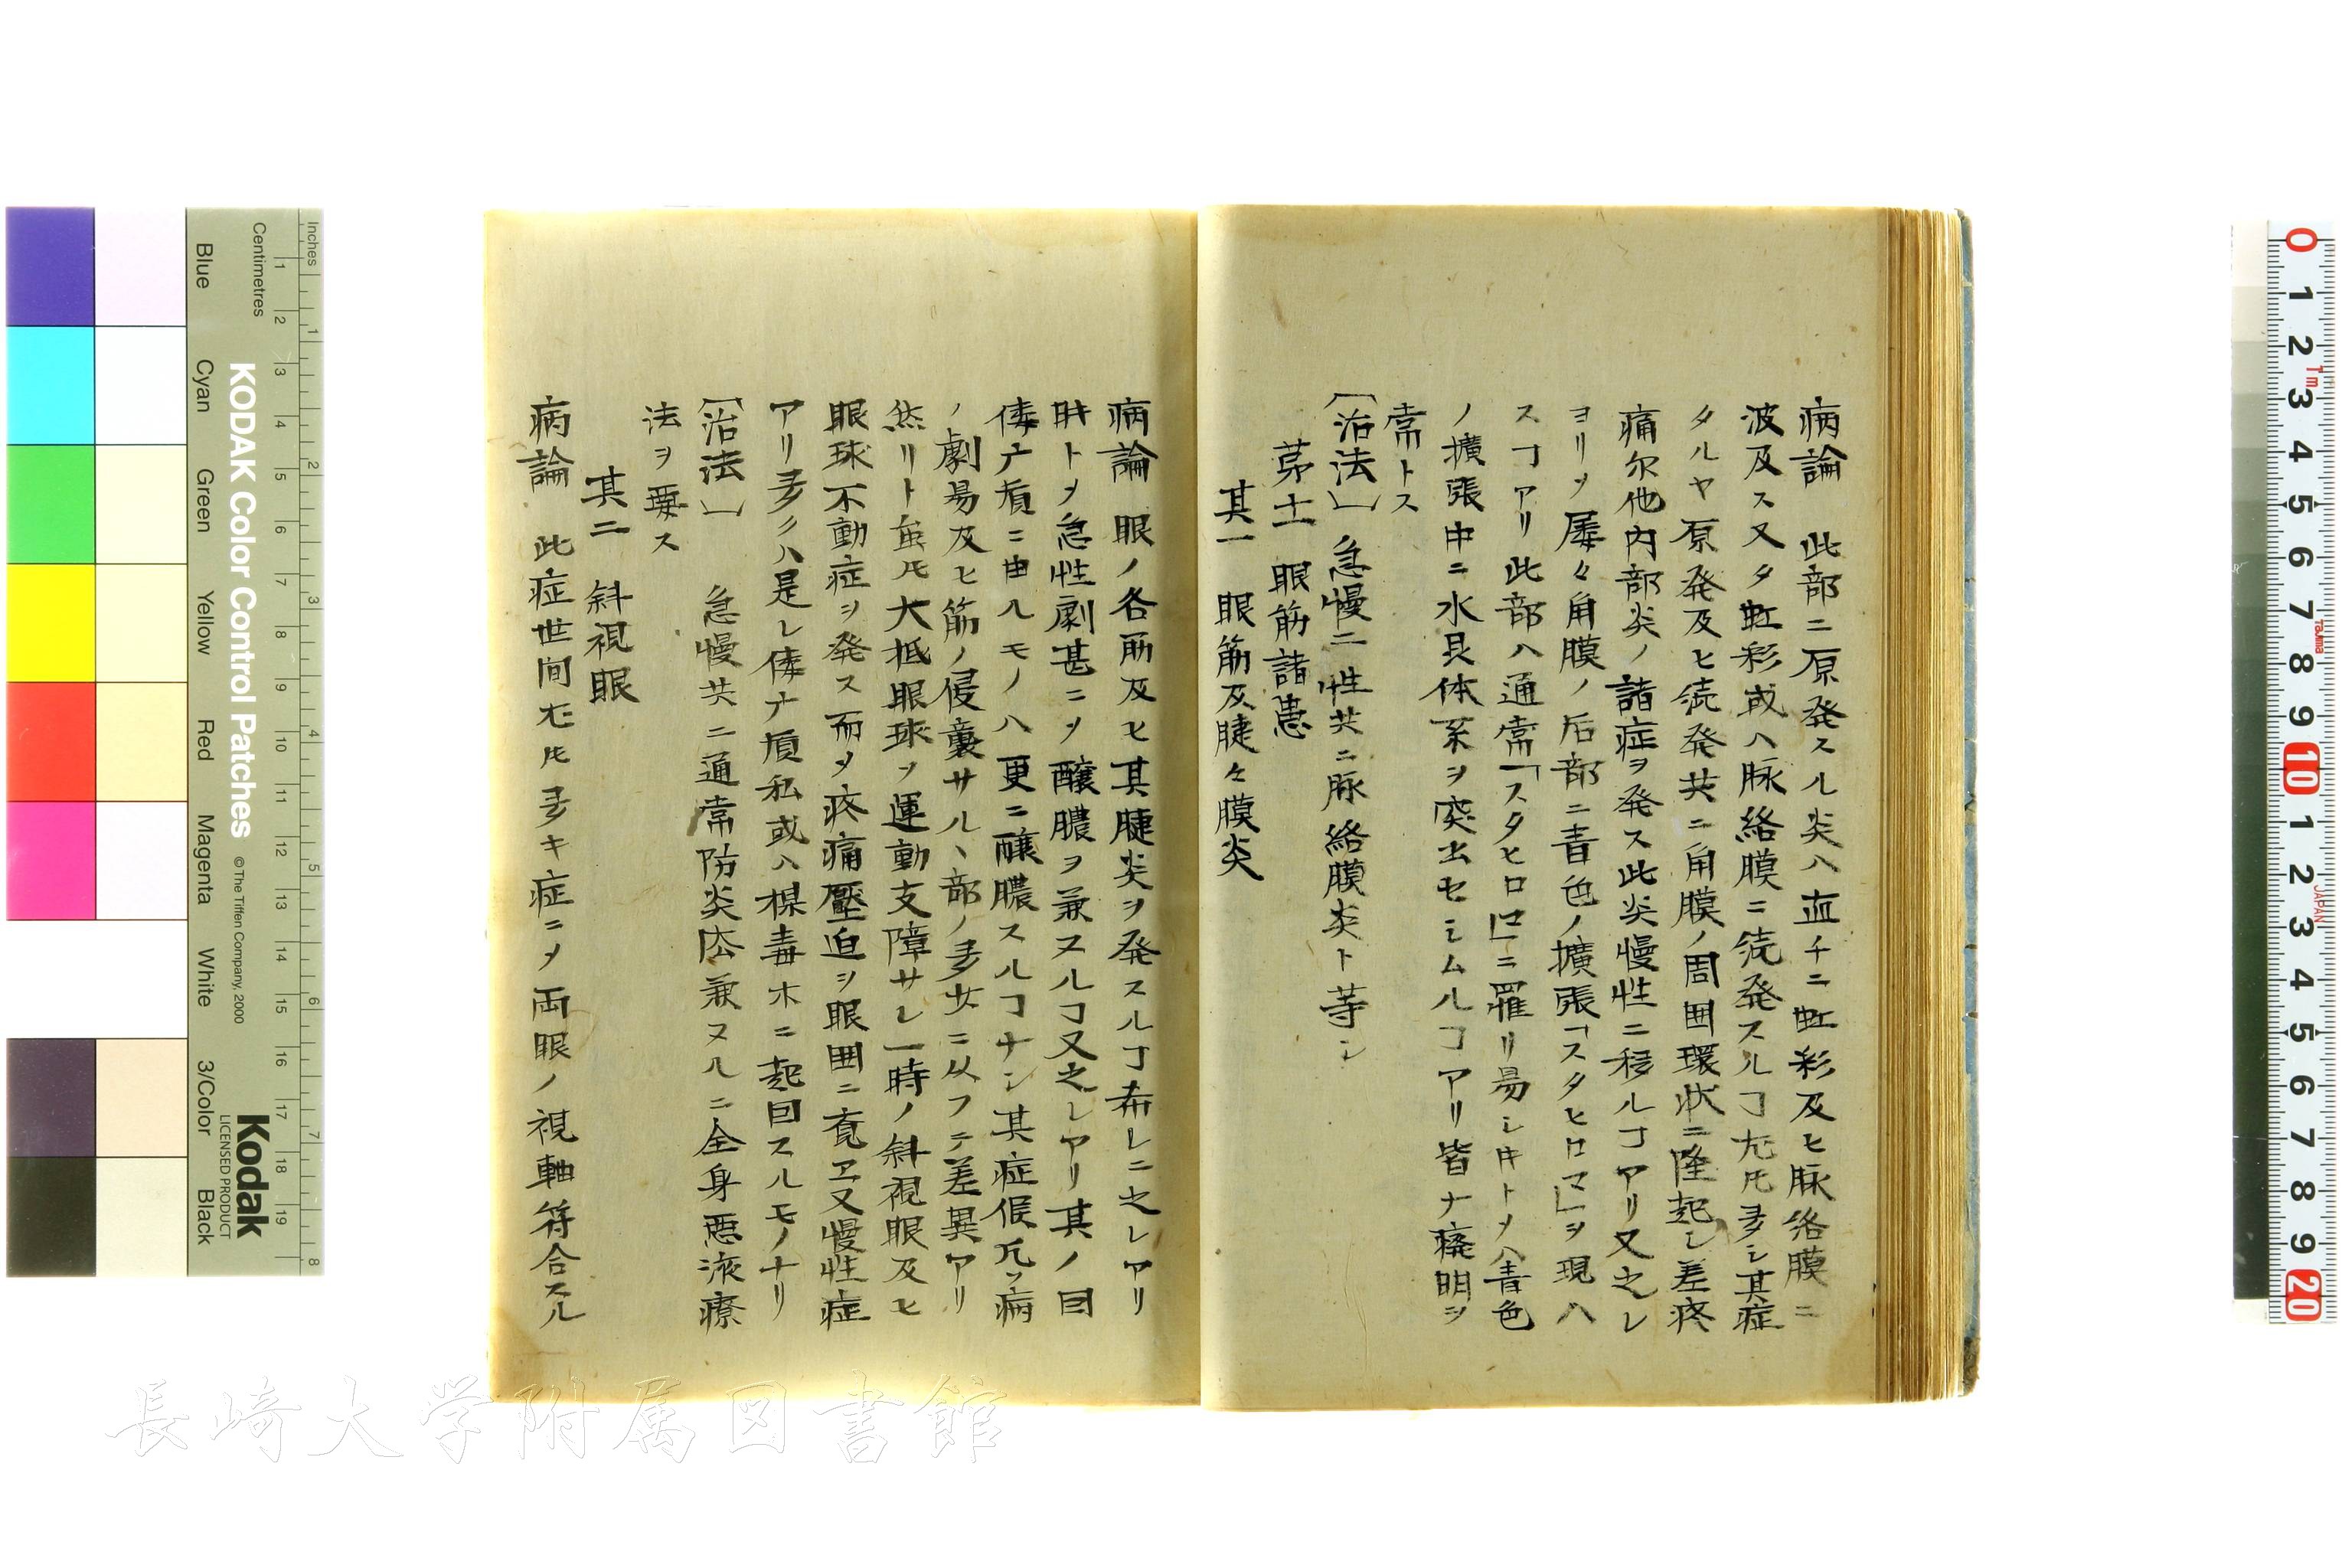 病論 此部ニ原発スル炎ハ直チニ虹彩及ヒ脉絡膜ニ
波及ス又タ虹彩或ハ脉絡膜ニ続発スルヿ尤𪜈多シ其症
タルヤ原発及ヒ続発共ニ角膜ノ周囲環状ニ隆起シ羞疼
痛尓他内部炎ノ諸症ヲ発ス此炎慢性ニ移ルヿアリ又之レ
ヨリ〆屡々角膜ノ后部ニ青色ノ擴張「スタヒロマ」ヲ現ハ
スヿアリ此部ハ通常「スタヒロマ」ニ罹リ易シ𪜀トメハ青色
ノ擴張中ニ水晶体系ヲ突出セシムルヿアリ皆ナ癈明ヲ
常トス
〔治法〕 急慢二性共ニ脉絡膜炎ト等シ
第十一 眼筋諸患
其一 眼筋及腱々膜炎
病論 眼ノ各筋及ヒ其腱炎ヲ発スルヿ希レニ之レアリ
時ト〆急性劇甚ニ〆釀膿ヲ兼ヌルヿ又之レアリ其ノ因
僂麻質ニ由ルモノハ更ニ釀膿スルヿナシ其症候凡ソ病
ノ劇易及ヒ筋ノ侵襲サルヽ部ノ多少ニ从フテ差異アリ
然リト虽𪜈大抵眼球ノ運動支障サレ一時ノ斜視眼及ヒ
眼球不動症ヲ発ス而〆疼痛壓迫ヲ眼囲ニ覚ヱ又慢性症
アリ多クハ是レ僂麻質私或ハ楳毒ホニ起因スルモノナリ
〔治法〕 急慢共ニ通常防炎法兼ヌルニ全身悪液療
法ヲ要ス
其二 斜視眼
病論 此症世间尤𪜈多キ症ニ〆両眼ノ視軸符合スル
Inches
Centimetres
KODAK Color Control Patches
© The Tiffen Company, 2000
Kodak
LICENSED PRODUCT
Blue
Cyan
Green
Yellow
Red
Magenta
White
3/Color
Black
長崎大学附属図書館